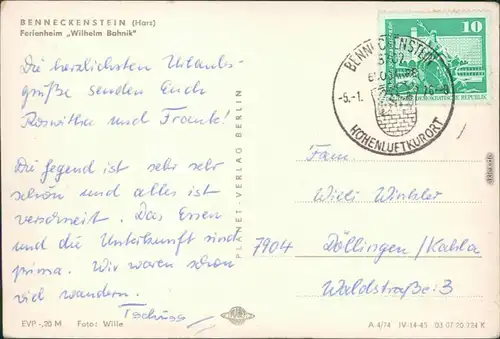 BENNECKENSTEIN (Harz)
Ferienheim „Wilhelm Bahnik"
Die herzlichsten Urlaubs-
grüße senden Euch
Roswitha und Frank!
Die Gegend ist sehr sehr
schön und alles ist
verschneit. Das Essen
und die Unterkunft sind
prima. Wir waren schon
viel wandern.
Tschüss
EVP -,20 M Foto: Wille
PLANET-VERLAG BERLIN
BENNECKENSTEIN
-5.-1.
HÖHENLUFTKURORT
10
DEMOKRATISCHE REPUBLIK
Fam.
Willi Winkler
7904 Döllingen/Kahla
Waldstraße 3
A 4/74 IV-14-45 03 07 20 734 K